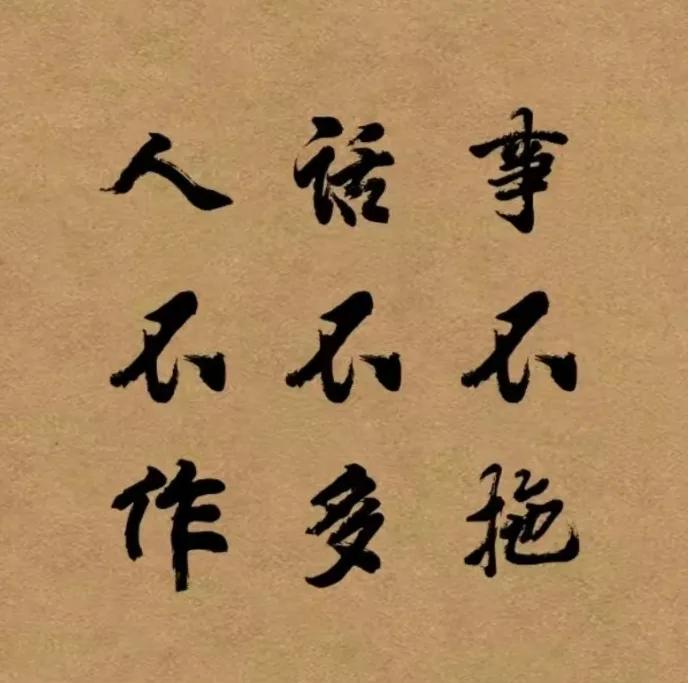 事不拖
话不多
人不作